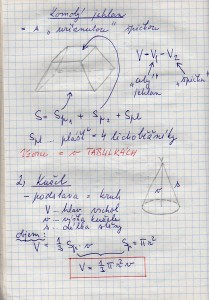 Komolý jehlan
= s "uříznutou" špičkou
V = V₁ - V₂
"celý" jehlan
"špička"
S = Sp₁ + Sp₂ + Spl
Spl - plášť = 4 lichoběžníky
Vzorce = v TABULKÁCH
2) Kužel
- podstava = kruh
V - hlav. vrchol
v - výška kužele
s - délka strany
v
s
objem:
V = 1/3 Sp · v
Sp = πr²
V = 1/3 πr² v